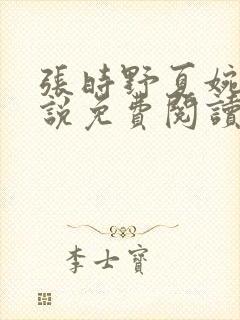 張時野夏婉
說免費閱讀
李士寶